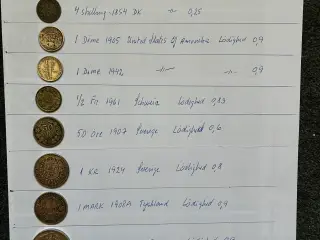 4 skilling - 1854 DK -"- 0,25
1 Dime 1905 United States Of Amerika Lödighed 0,9
1 Dime 1942 -"- 0,9
1/2 Fr 1961 Schweiz Lödighed 0,83
50 Öre 1907 Sverige Lödighed 0,6
1 KR 1924 Sverige Lödighed 0,8
1 MARK 1908A Tyskland Lödighed 0,9